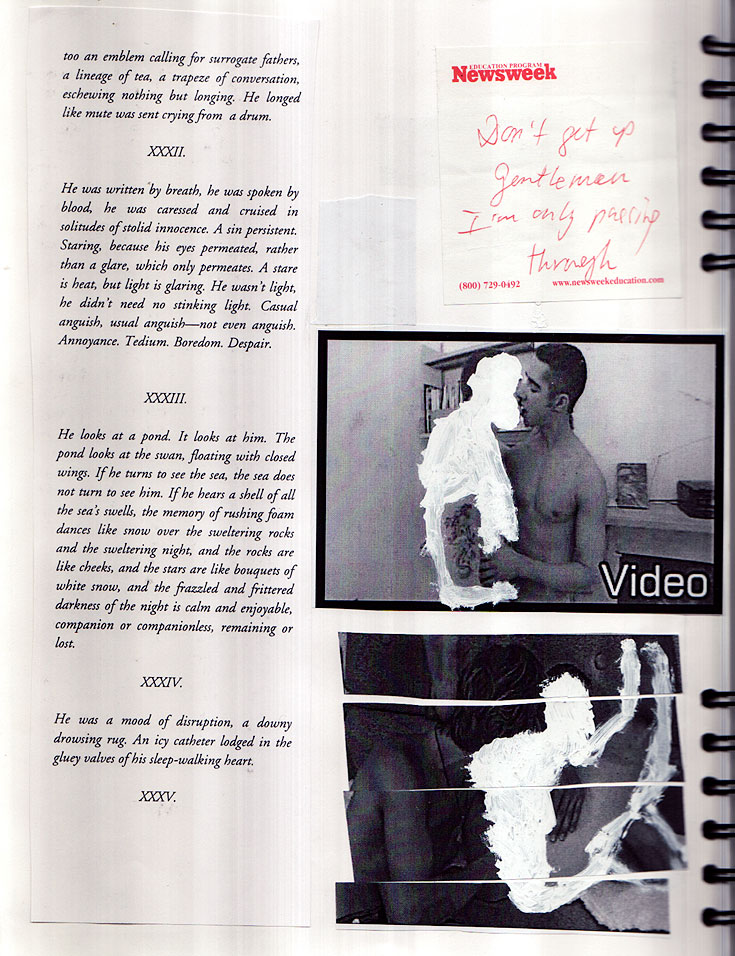 too an emblem calling for surrogate fathers,
a lineage of tea, a trapeze of conversation,
eschewing nothing but longing. He longed
like mute was sent crying from a drum.
XXXII.
He was written by breath, he was spoken by
blood, he was caressed and cruised in
solitudes of stolid innocence. A sin persistent.
Staring, because his eyes permeated, rather
than a glare, which only permeates. A stare
is heat, but light is glaring. He wasn't light,
he didn't need no stinking light. Casual
anguish, usual anguish—not even anguish.
Annoyance. Tedium. Boredom. Despair.
XXXIII.
He looks at a pond. It looks at him. The
pond looks at the swan, floating with closed
wings. If he turns to see the sea, the sea does
not turn to see him. If he hears a shell of all
the sea's swells, the memory of rushing foam
dances like snow over the sweltering rocks
and the sweltering night, and the rocks are
like cheeks, and the stars are like bouquets of
white snow, and the frazzled and frittered
darkness of the night is calm and enjoyable,
companion or companionless, remaining or
lost.
XXXIV.
He was a mood of disruption, a downy
drowsing rug. An icy catheter lodged in the
gluey valves of his sleep-walking heart.
XXXV.
EDUCATION PROGRAM
Newsweek
Don't get up
gentleman
I'm only passing
through
(800) 729-0492 www.newsweekeducation.com
Video